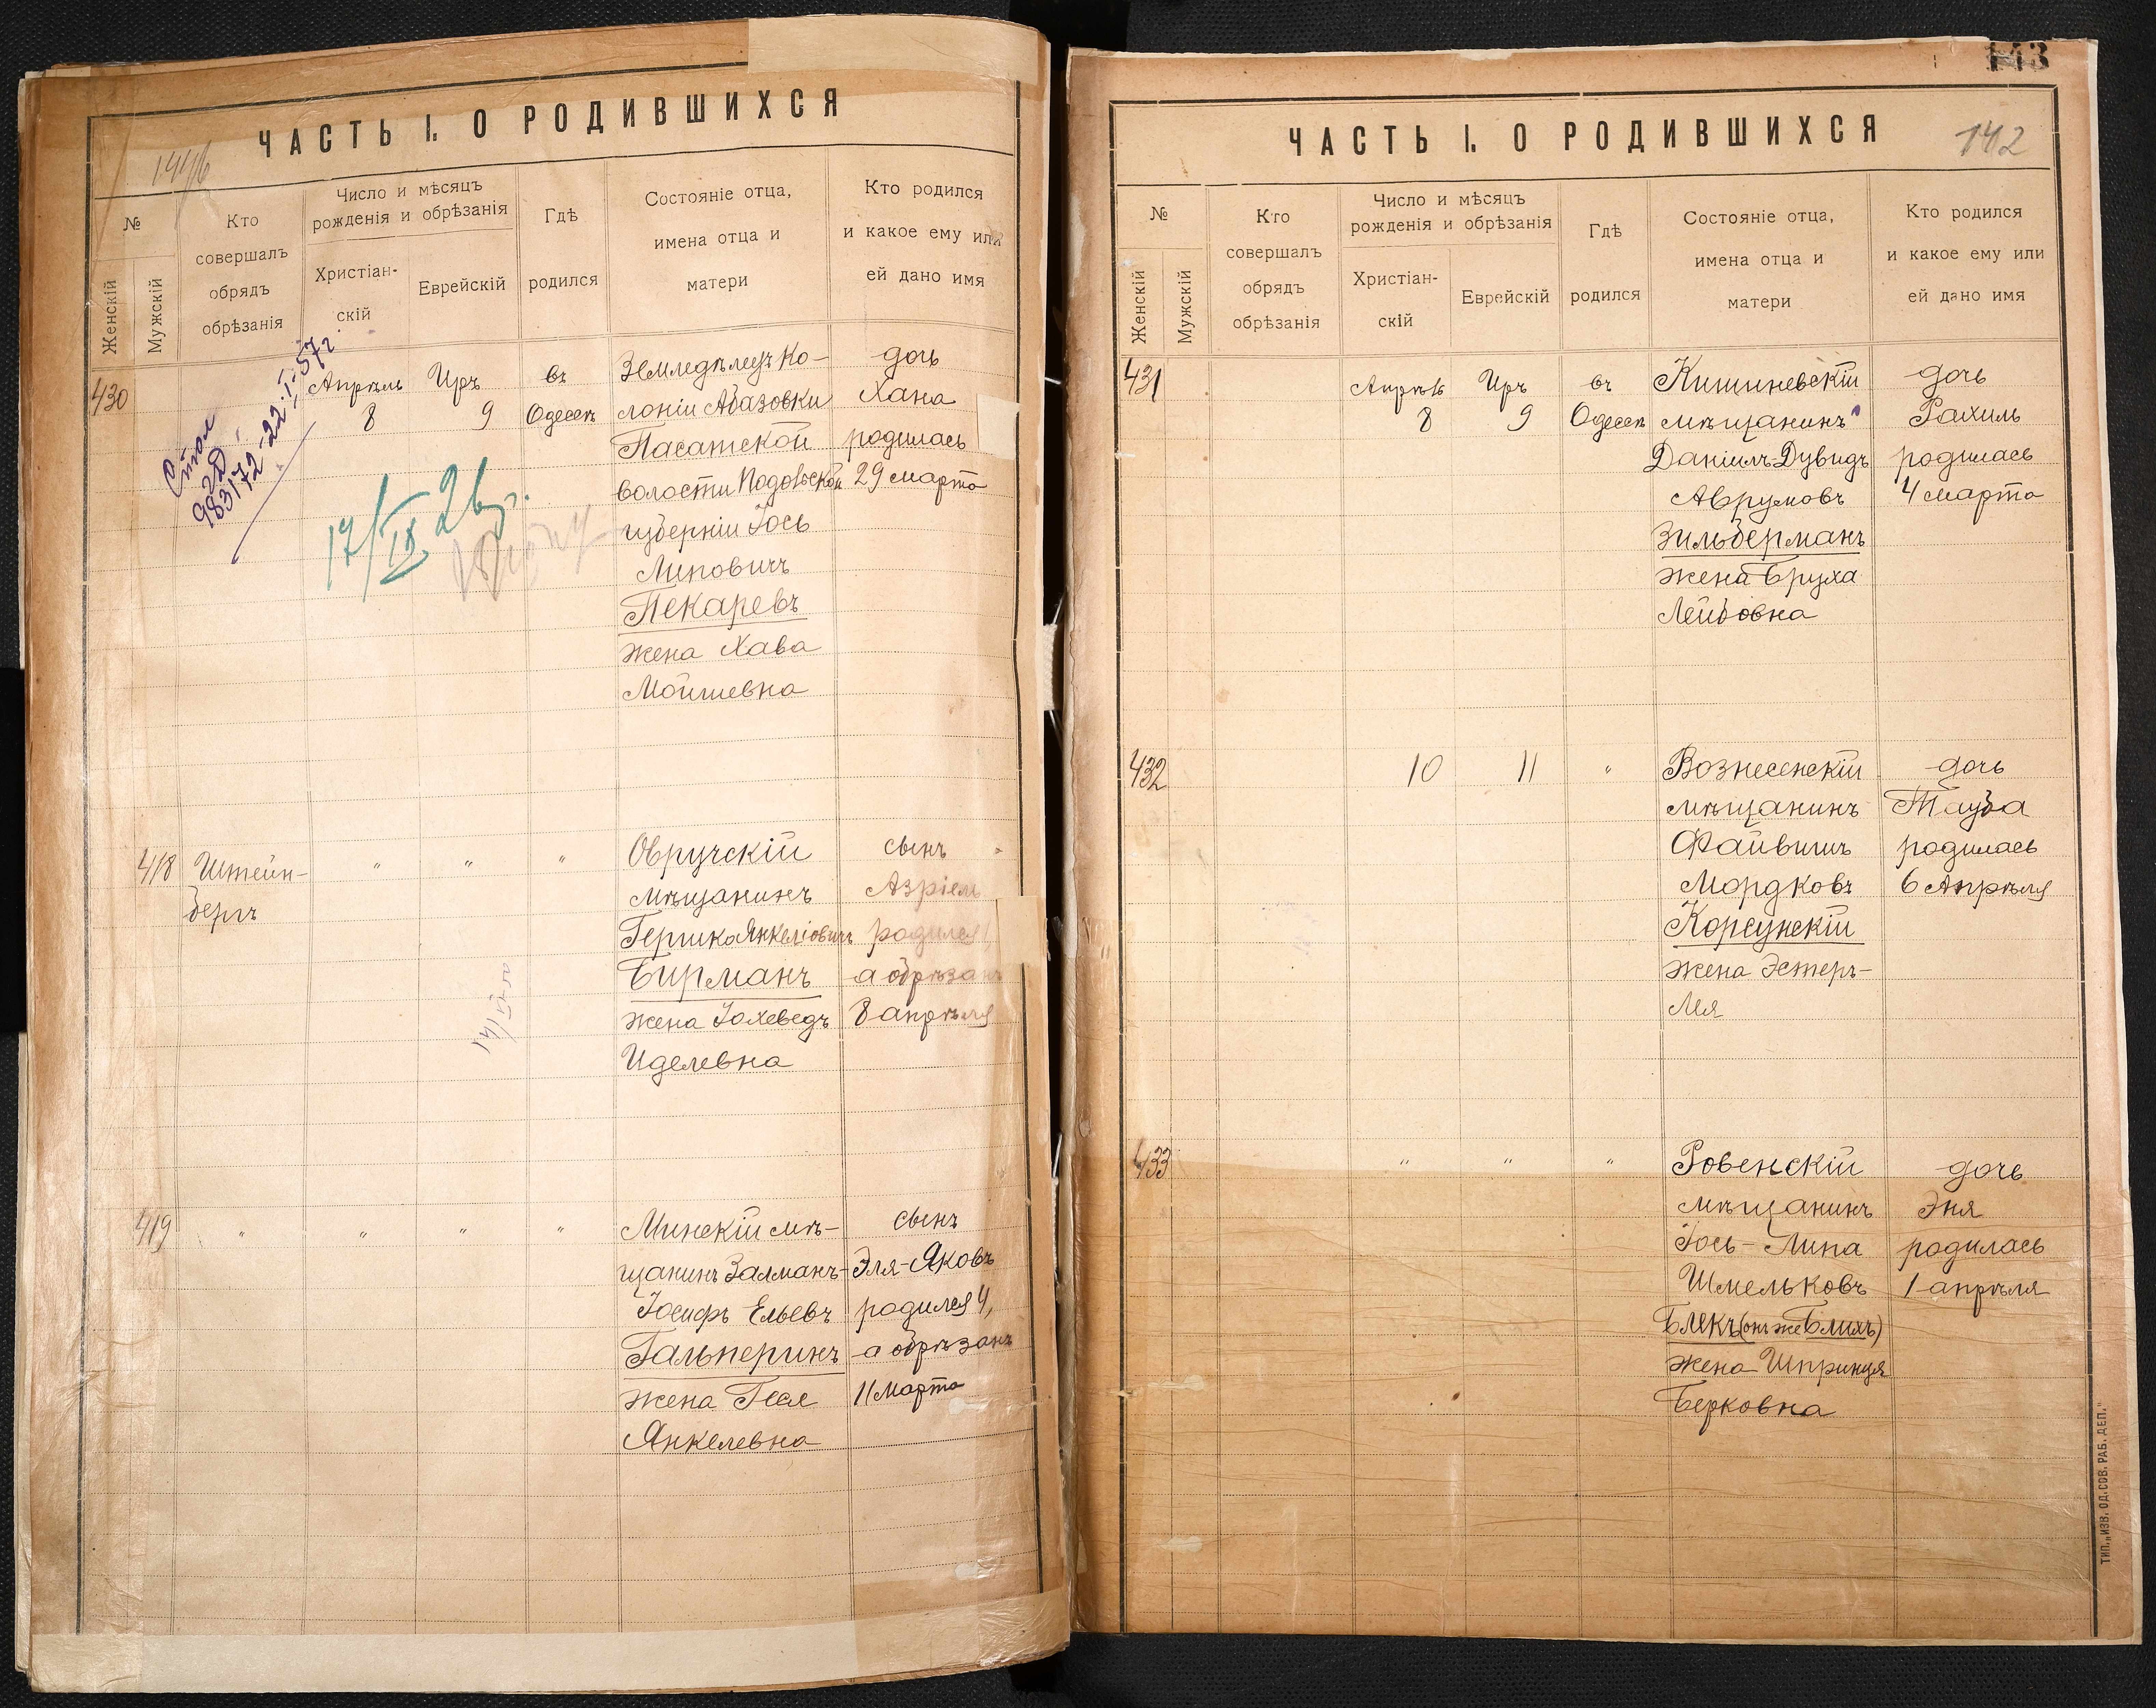 ЧАСТЬ I. О РОДИВШИХСЯ
№
Женскій
Мужскій
Кто
совершалъ
обрядъ
обрѣзанія
Число и мѣсяцъ
рожденія и обрѣзанія
Христіан-
скій
Еврейскій
Гдѣ
родился
Состояніе отца,
имена отца и
матери
Кто родился
и какое ему или
ей дано имя
Стол
98317 72-22-I-57г
17/IX 26г.
430
Апрѣль
8
Иръ
9
въ
Одессѣ
Земледѣлецъ Ко-
лоніи Абазовки
Пасатской
волости Подольской
губерніи Іось
Липовичъ
Пекаревъ
жена Хава
Мойшевна
дочь
Хана
родилась
29 марта
418
Штейн-
бергъ
"
"
"
Овручскій
мѣщанинъ
Гершко Янкеліовичъ
Бирманъ
жена Іохеведъ
Иделевна
сынъ
Азріель
родился 1,
а обрѣзанъ
8 апрѣля
419
"
"
"
"
Минскій мѣ-
щанинъ Залманъ-
Іосифъ Ельевъ
Гальперинъ
жена Геся
Янкелевна
сынъ
Эля-Яковъ
родился 4,
а обрѣзанъ
11 марта
143
ЧАСТЬ I. О РОДИВШИХСЯ
142
№
Женскій
Мужскій
Кто
совершалъ
обрядъ
обрѣзанія
Число и мѣсяцъ
рожденія и обрѣзанія
Христіан-
скій
Еврейскій
Гдѣ
родился
Состояніе отца,
имена отца и
матери
Кто родился
и какое ему или
ей дано имя
431
Апрѣль
8
Иръ
9
въ
Одессѣ
Кишиневскій
мѣщанинъ
Даніилъ-Дувидъ
Аврумовъ
Зильберманъ
жена Бруха
Лейбовна
дочь
Рахиль
родилась
4 марта
432
10
11
"
Вознесенскій
мѣщанинъ
Файвишъ
Мордковъ
Корсунскій
жена Эстеръ-
Лея
дочь
Тауба
родилась
6 Апрѣля
433
"
"
"
Ровенскій
мѣщанинъ
Іось-Липа
Шмельковъ
Блекъ (онъ же Блихъ)
жена Шпринця
Берковна
дочь
Эня
родилась
1 апрѣля
ТИП. „ИЗВ. ОД. СОВ. РАБ. ДЕП."